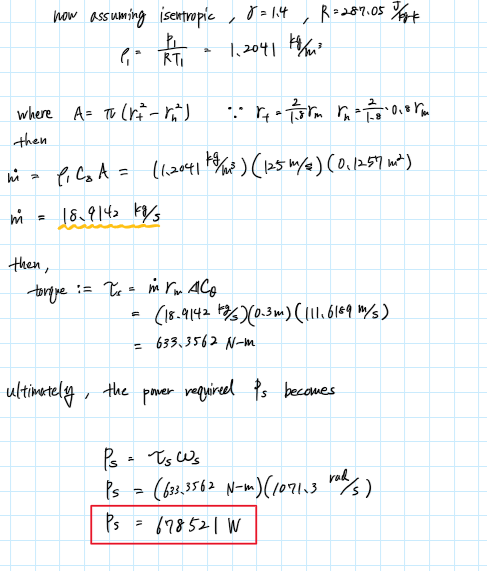 now assuming isentropic , γ = 1.4 , R = 287.05 J/kg·K
ρ₁ = P₁/RT₁ = 1.2041 kg/m³
where A = π (r_t² - r_h²) ∵ r_t = 2/1.8 r_m r_h = 2/1.8 · 0.8 r_m
then
ṁ = ρ₁ C_a A = (1.2041 kg/m³)(125 m/s)(0.1257 m²)
ṁ = 18.9142 kg/s
then,
torque := τ_s = ṁ r_m ΔC_θ
= (18.9142 kg/s)(0.3 m)(111.6189 m/s)
= 633.3562 N-m
ultimately, the power required P_s becomes
P_s = τ_s ω_s
P_s = (633.3562 N-m)(1071.3 rad/s)
P_s = 678521 W